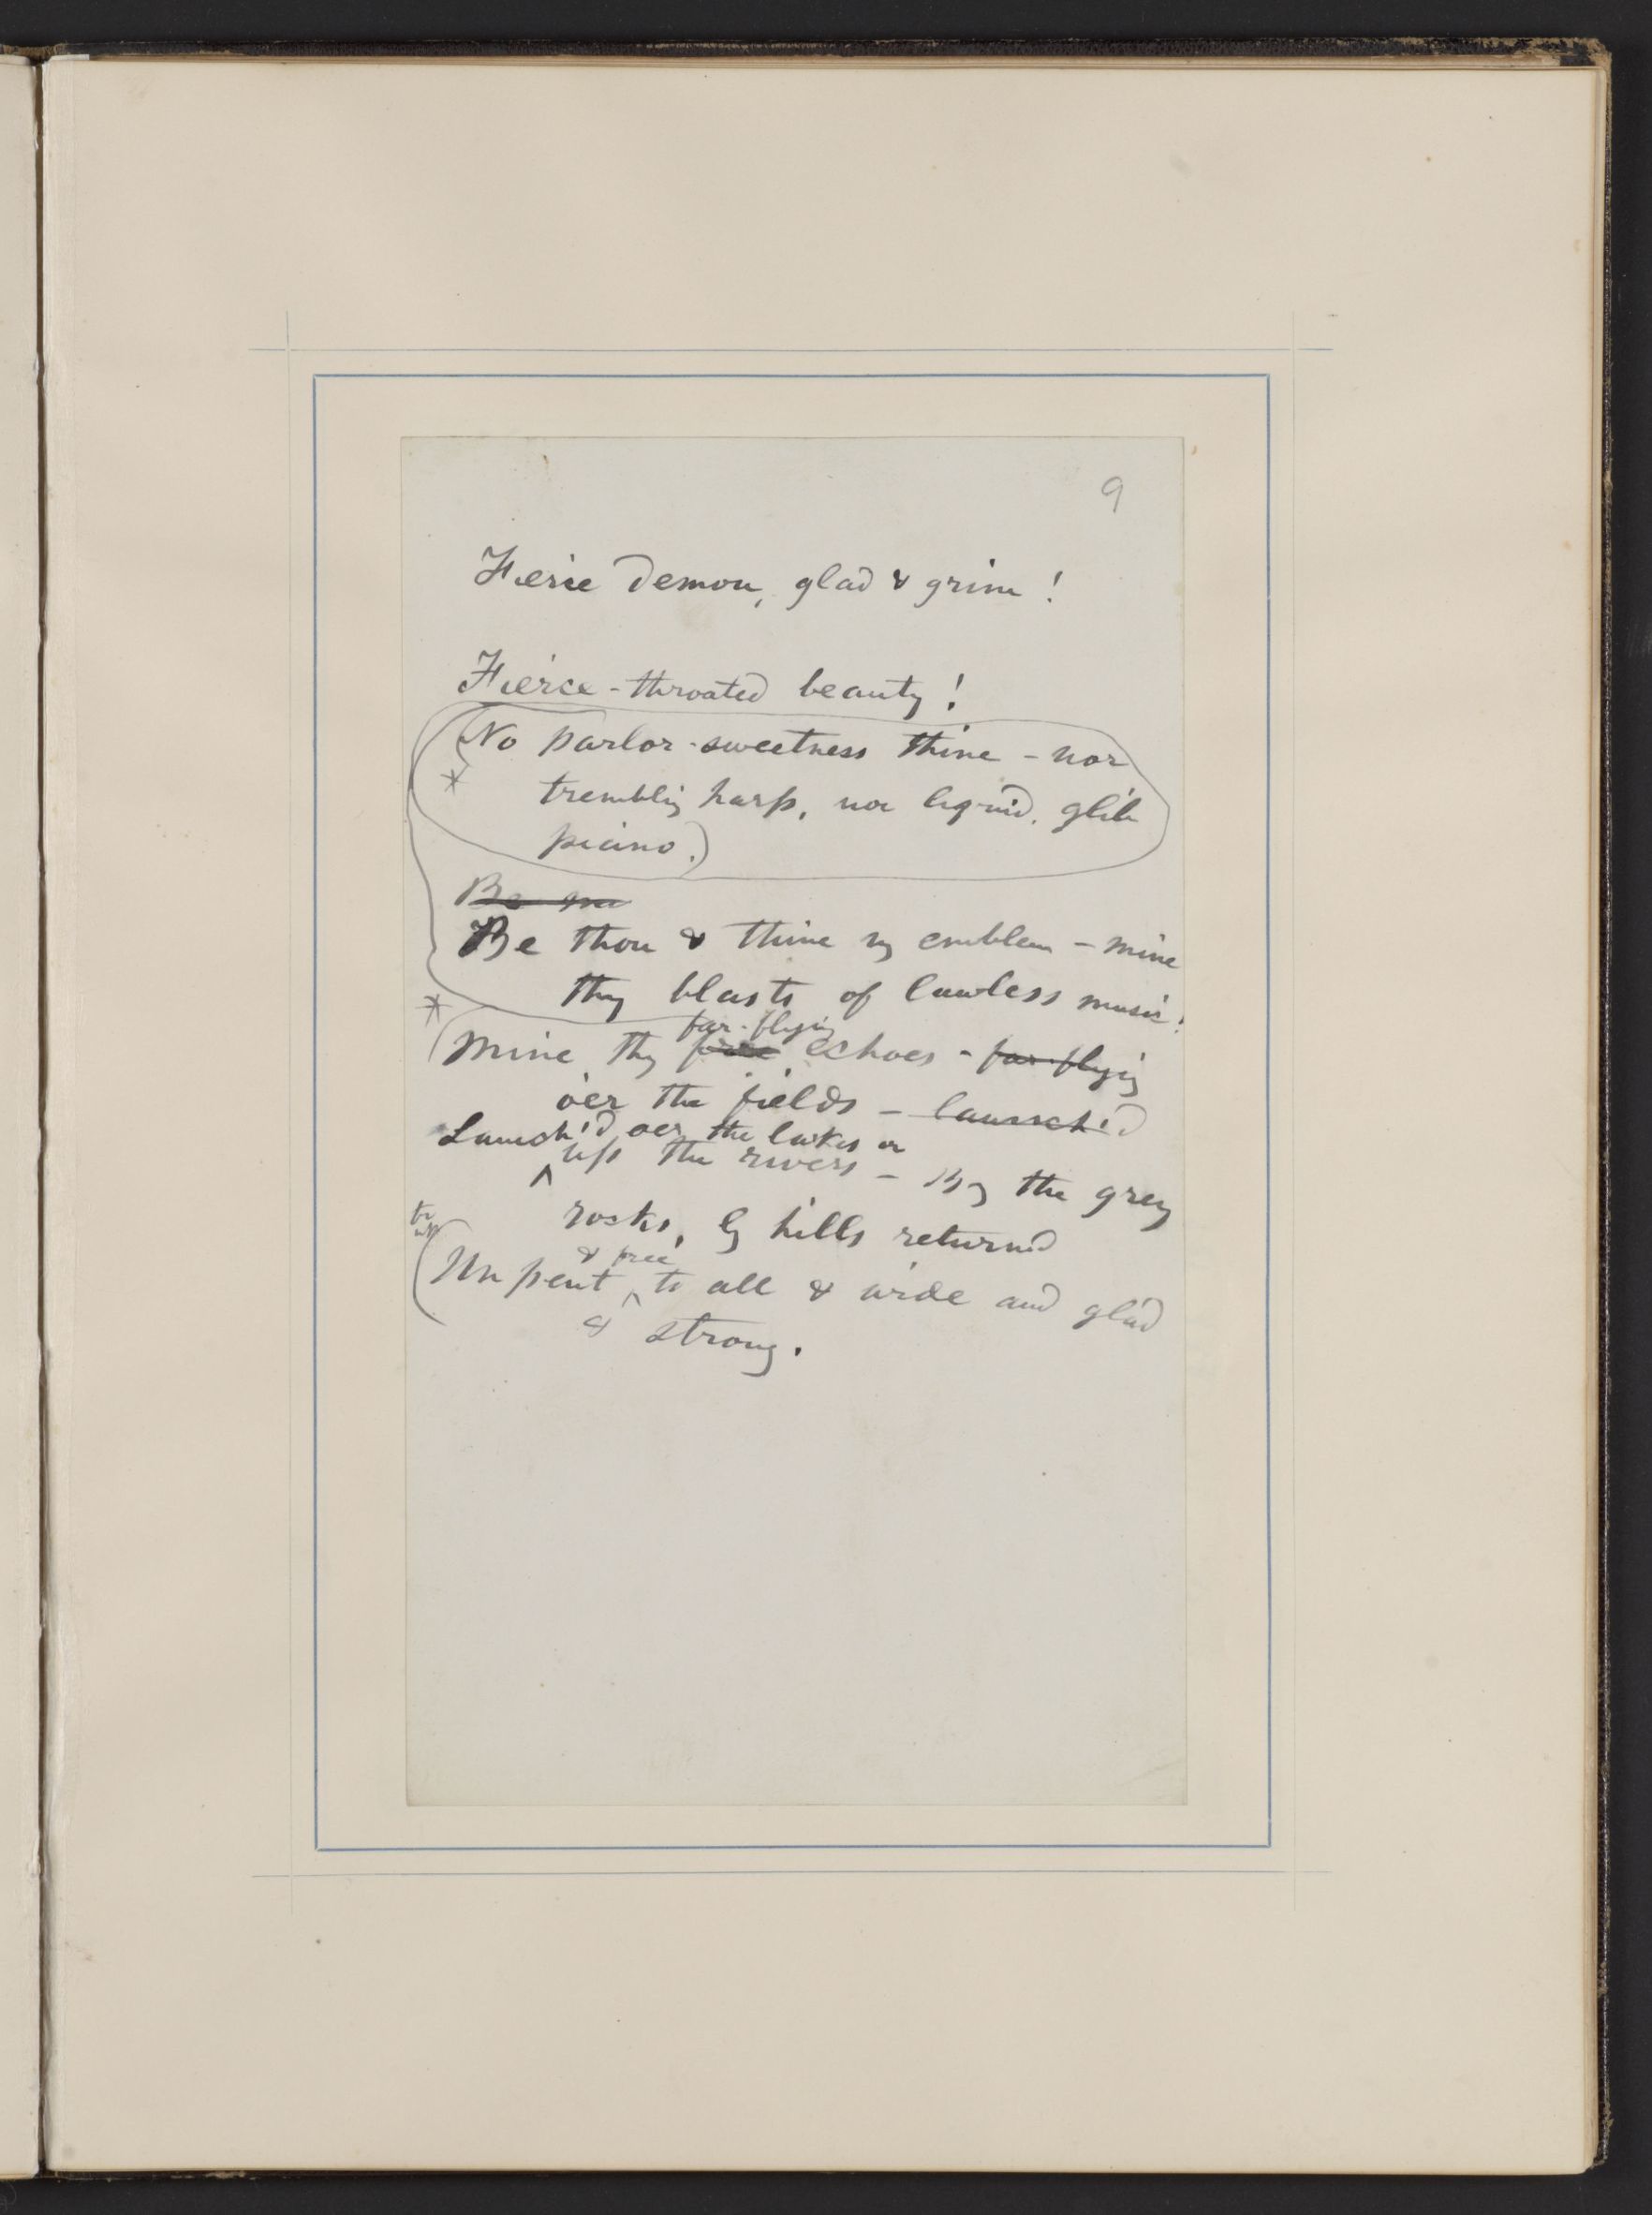 9
Fierce demon, glad & grim!
Fierce-throated beauty!
(No parlor-sweetness thine - nor
trembling harp, nor liquid, glib
piano.)
Be
Be thou & thine my emblem - mine
thy blasts of lawless music!
far-flying
Mine thy echoes - far-flying
o'er the fields - launch'd
Launch'd oer the lakes or
up the rivers - By the grey
rocks, by hills returned
& free
Unpent to all & wide and glad
& strong.